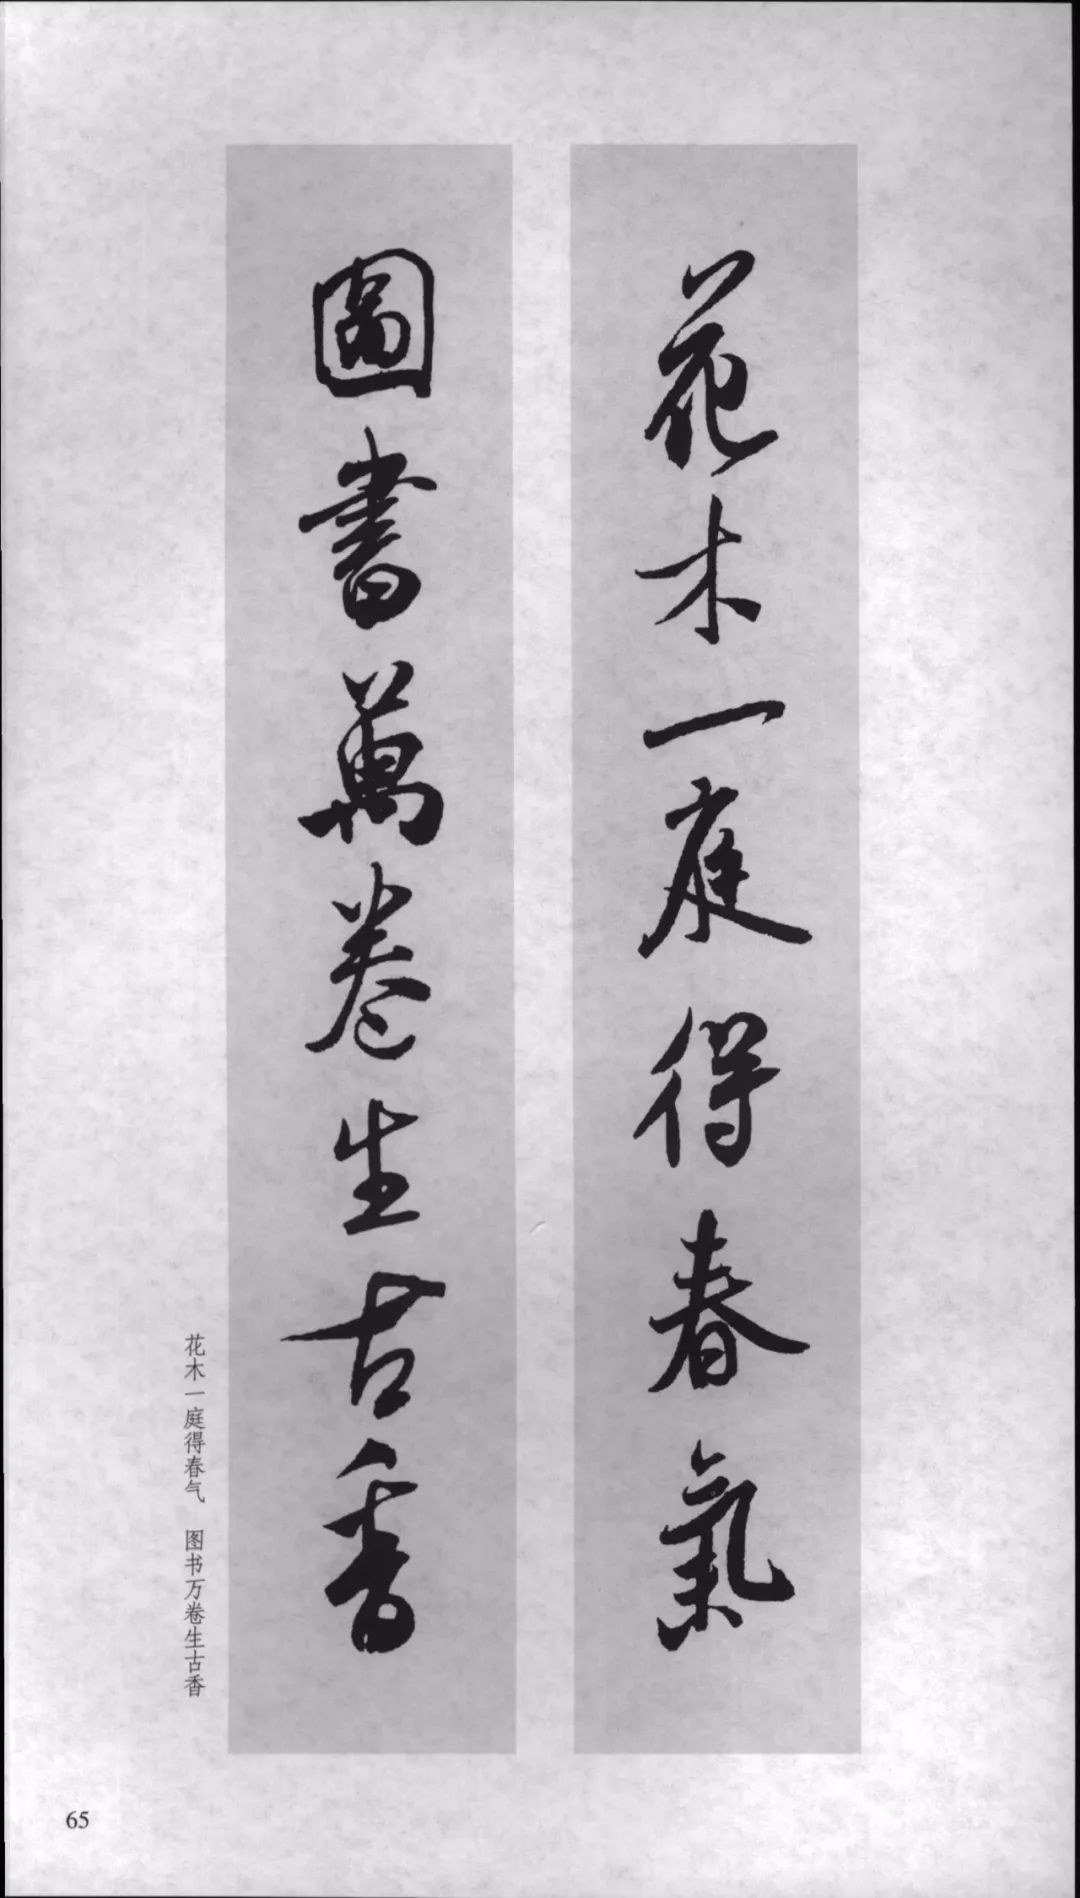 花木一庭得春氣
圖書萬卷生古香
花木一庭得春气　图书万卷生古香
65